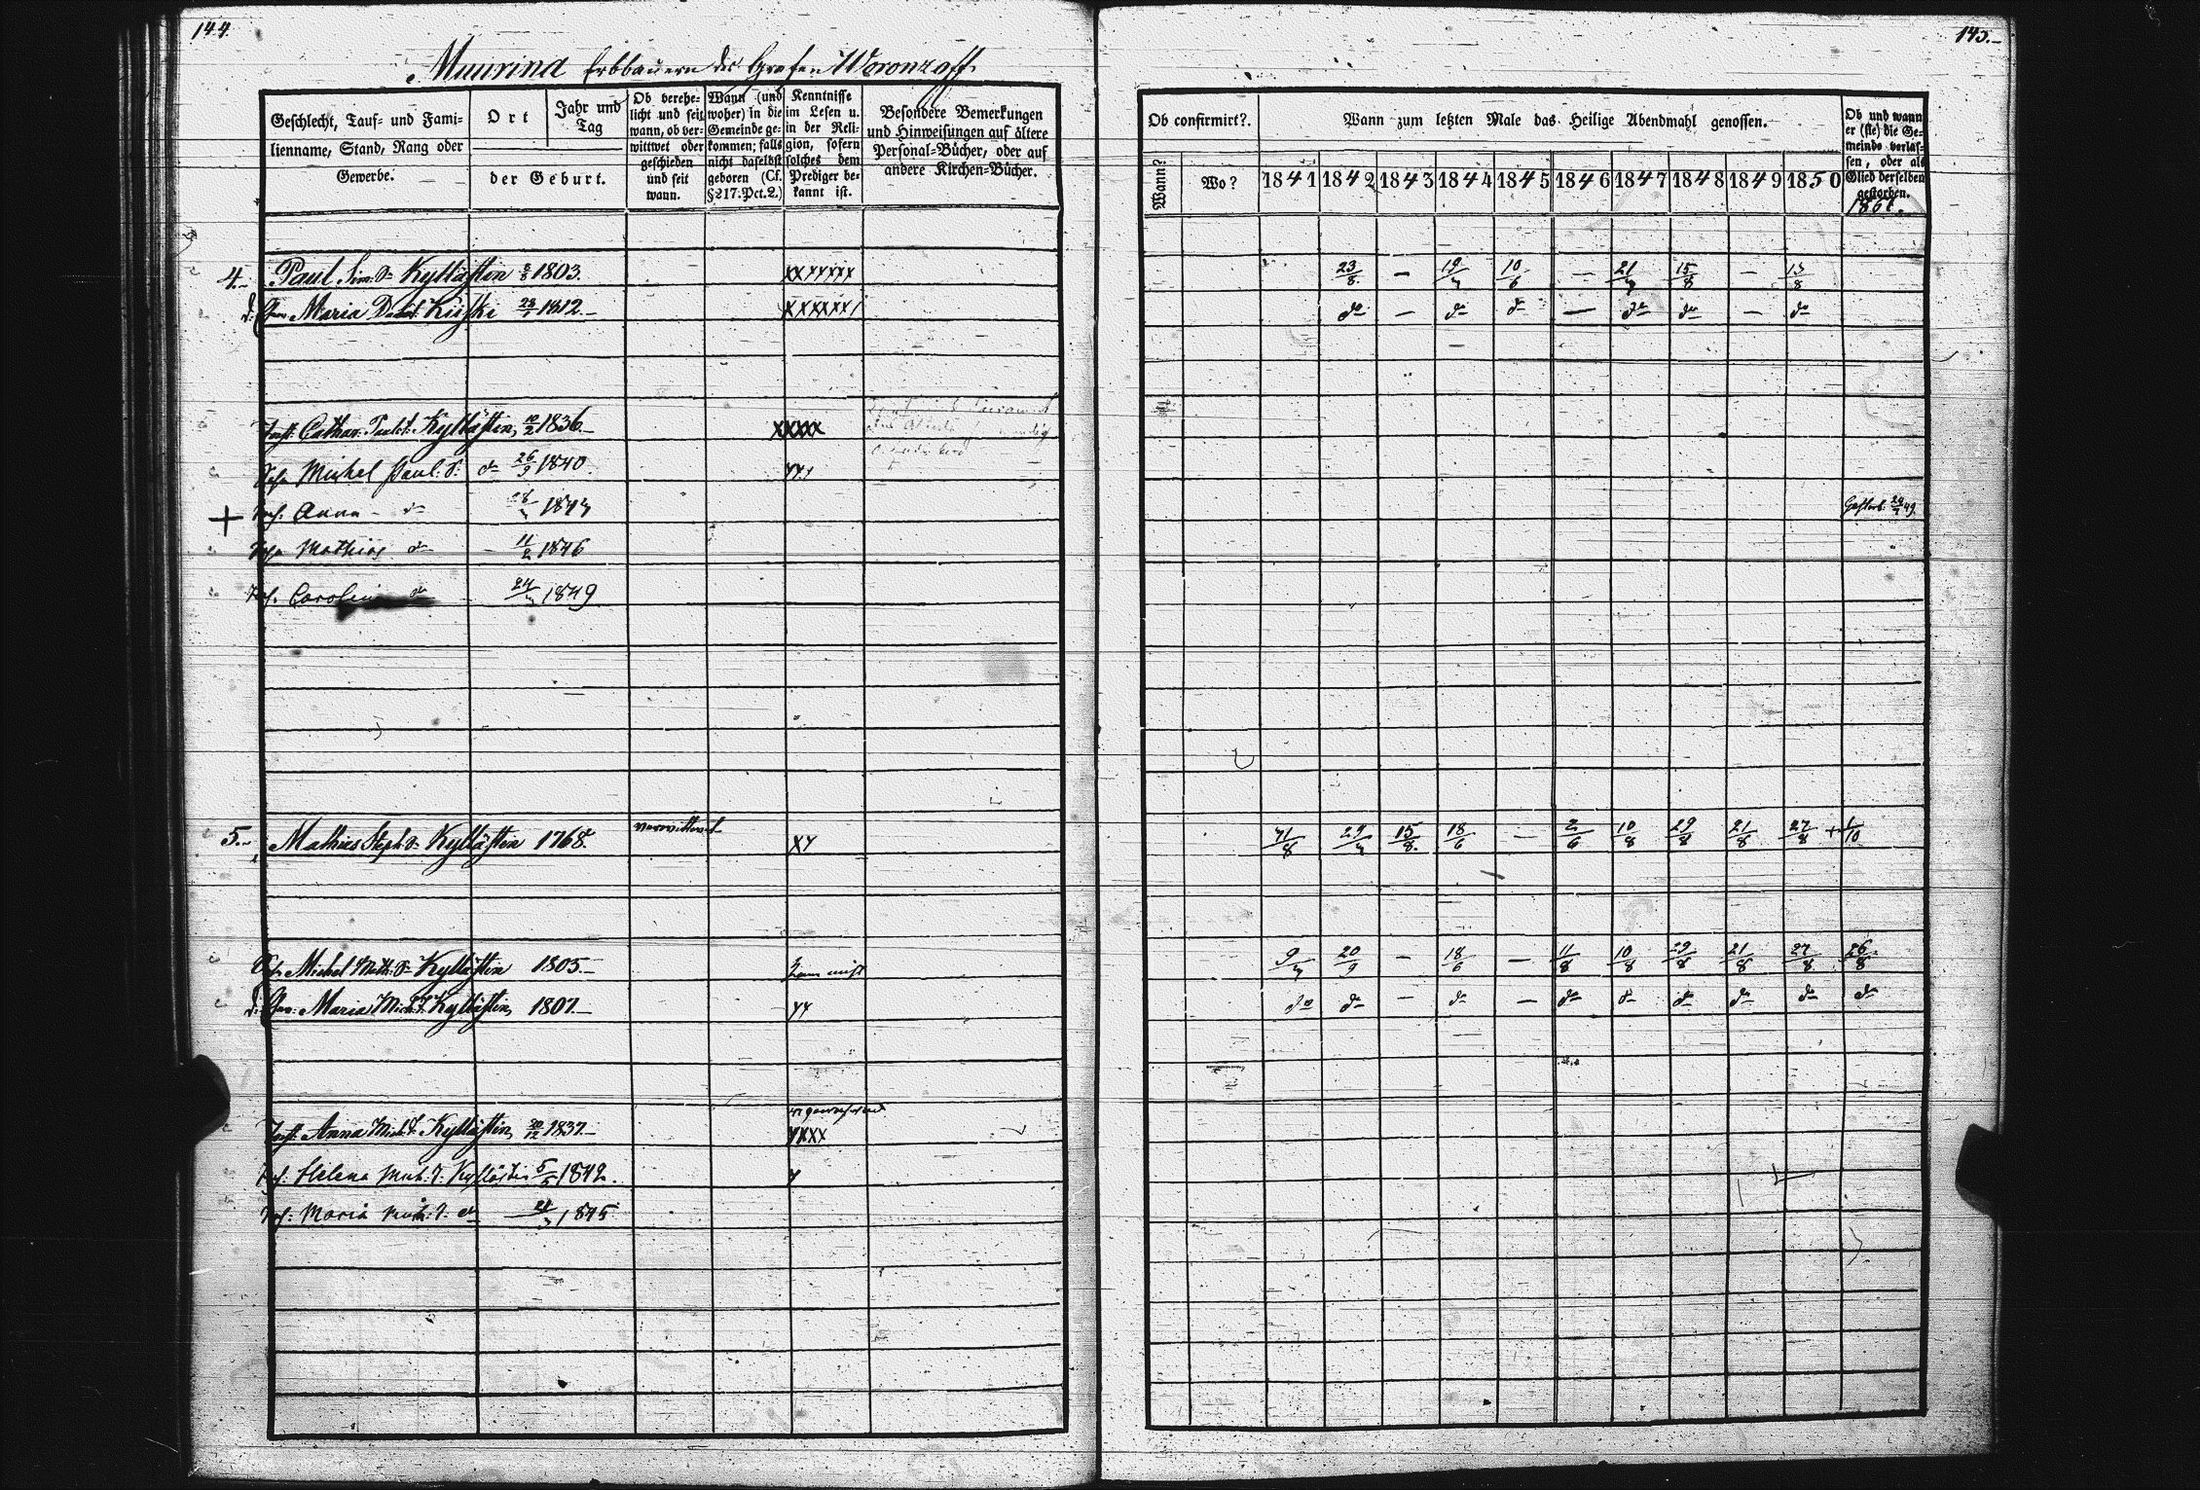 144.
Muurina Erbbauern des Grafen Woronzoff
Geschlecht, Tauf- und Familienname, Stand, Rang oder Gewerbe.
Ort
Jahr und Tag
der Geburt.
Ob verehelicht und seit wann, ob verwittwet oder geschieden und seit wann.
Wann (und woher) in die Gemeinde gekommen; falls nicht daselbst geboren (Cf. §217. Pct. 2.)
Kenntnisse im Lesen u. in der Religion, sofern solches dem Prediger bekannt ist.
Besondere Bemerkungen und Hinweisungen auf ältere Personal-Bücher, oder auf andere Kirchen-Bücher.
4. Paul Sim. S. Kylläştin 1803. XXXXXXX
Maria Kiiski 23/7 1812. XXXXXX/
Cathar. Paul. t. Kylläştin 1836. XXXXX
Michel Paul. S. do 26/9 1840.
+ Anna do
Mathias do 11/2 1846
Carolin do 24/7 1849
5. Mathias Steph. S. Kylläştin 1768. verwittwet XY
Michel Math. S. Kylläştin 1805.
Maria Mich. t. Kylläştin 1807. YY
Anna Mich. t. Kylläştin 20/12 1837. YXXX
Helena Mich. t. 5/5 1842.
Maria Mich. t. do 1845
145.
Ob confirmirt?.
Wann?
Wo?
Wann zum letzten Male das Heilige Abendmahl genossen.
1841 1842 1843 1844 1845 1846 1847 1848 1849 1850
Ob und wann er (sie) die Gemeinde verlassen, oder als Glied derselben gestorben.
23/8 — 19/7 10/6 — 21/7 15/8 — 13/8
do — do do — do do — do
Gestorb. 49.
29/7 15/8 18/6 — 2/6 10/8 29/8 21/8 27/8 + 1/10
9/7 20/9 — 18/6 — 11/8 10/8 29/8 21/8 27/8 26/8
do do — do — do do do do do do